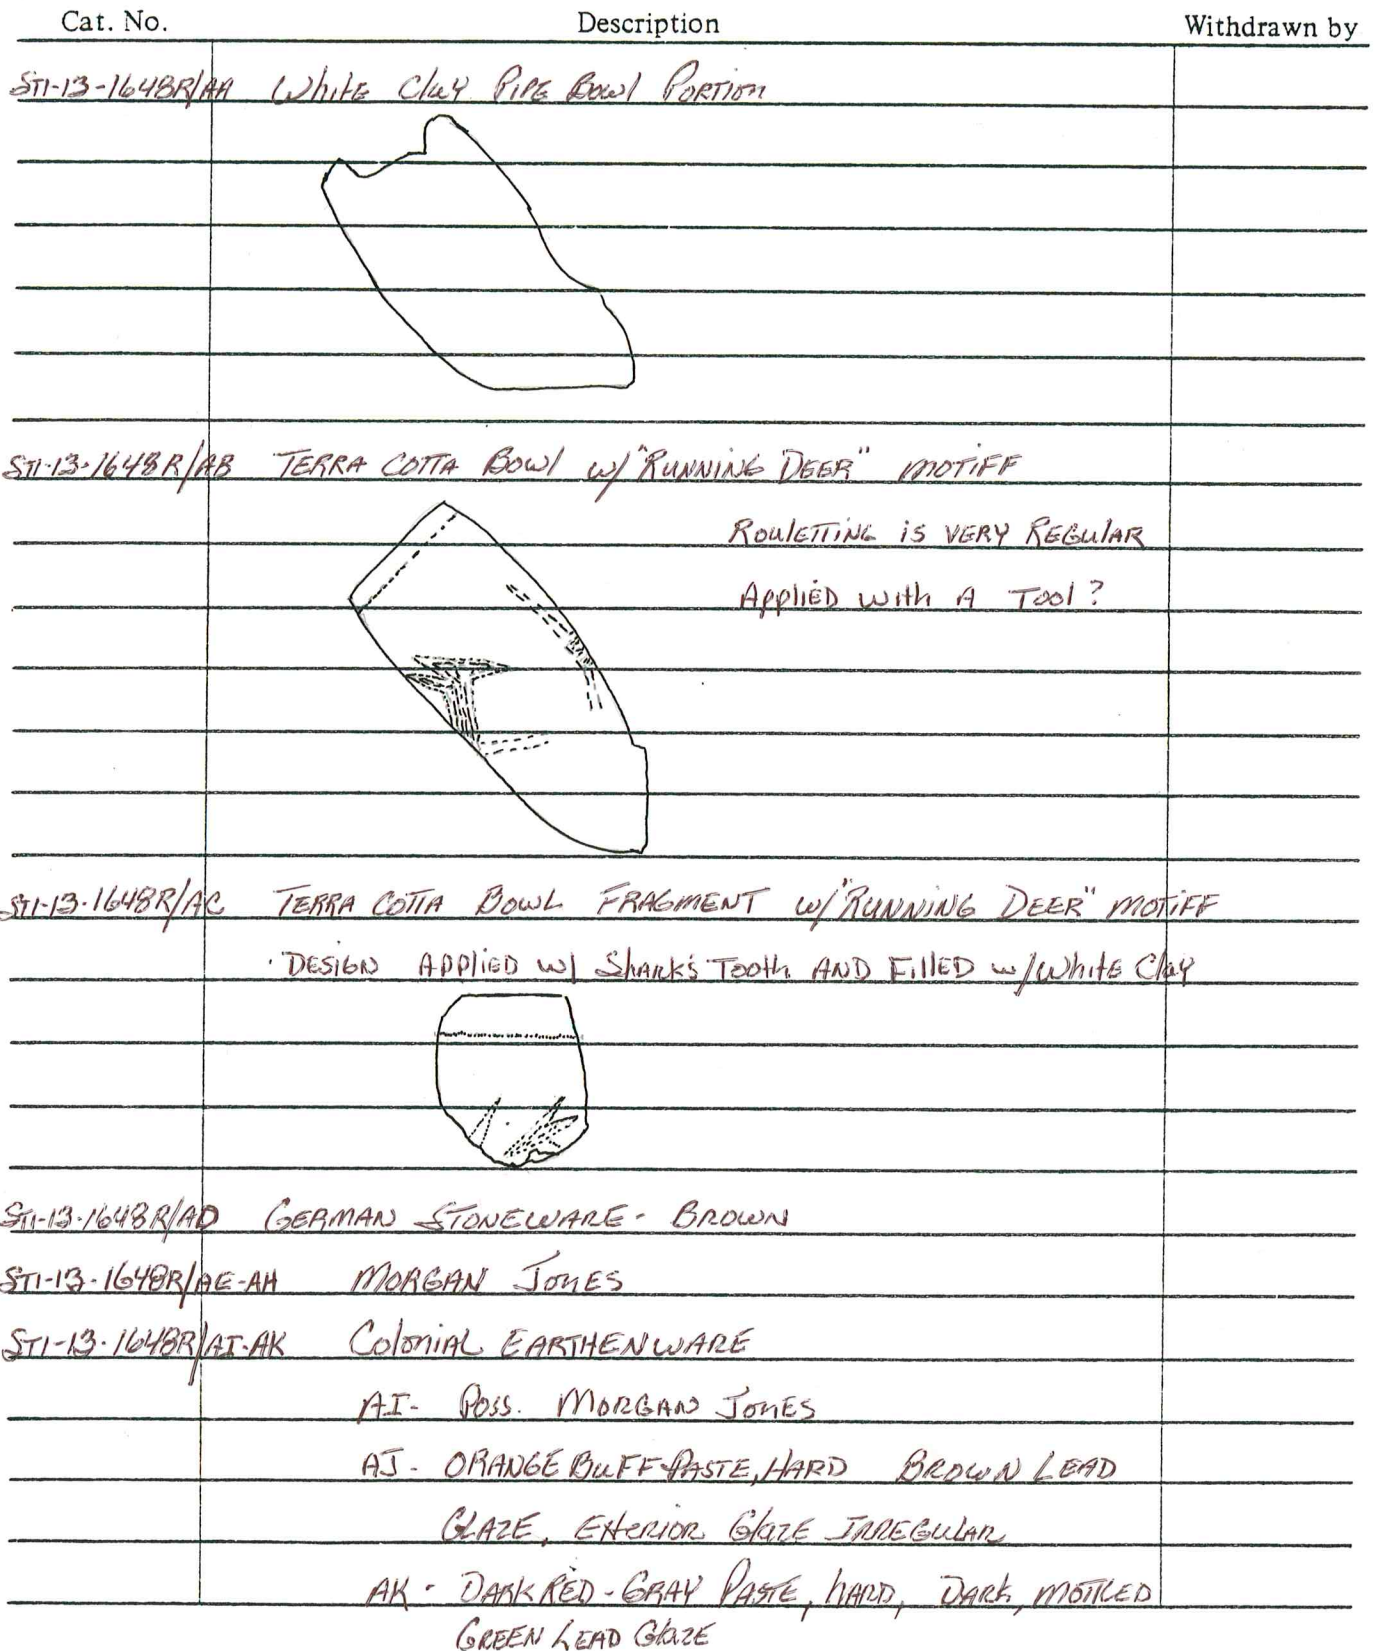 Cat. No. Description Withdrawn by
ST1-13-1648R/AA White Clay Pipe Bowl Portion
ST1-13-1648R/AB TERRA COTTA Bowl w/ "RUNNING DEER" MOTIFF
ROULETTING IS VERY REGULAR
Applied with A Tool?
ST1-13-1648R/AC TERRA COTTA BOWL FRAGMENT w/ "RUNNING DEER" MOTIFF
· DESIGN APPLIED w/ Shark's Tooth AND Filled w/ White Clay
ST1-13-1648R/AD GERMAN STONEWARE - BROWN
ST1-13-1648R/AE-AH MORGAN JONES
ST1-13-1648R/AI-AK Colonial EARTHENWARE
AI- Poss. MORGAN JONES
AJ- ORANGE BUFF PASTE, HARD BROWN LEAD
GLAZE, Exterior Glaze IRREGULAR
AK- DARK RED-GRAY PASTE, hARD, DARK, MOTTLED
GREEN LEAD GlAZE